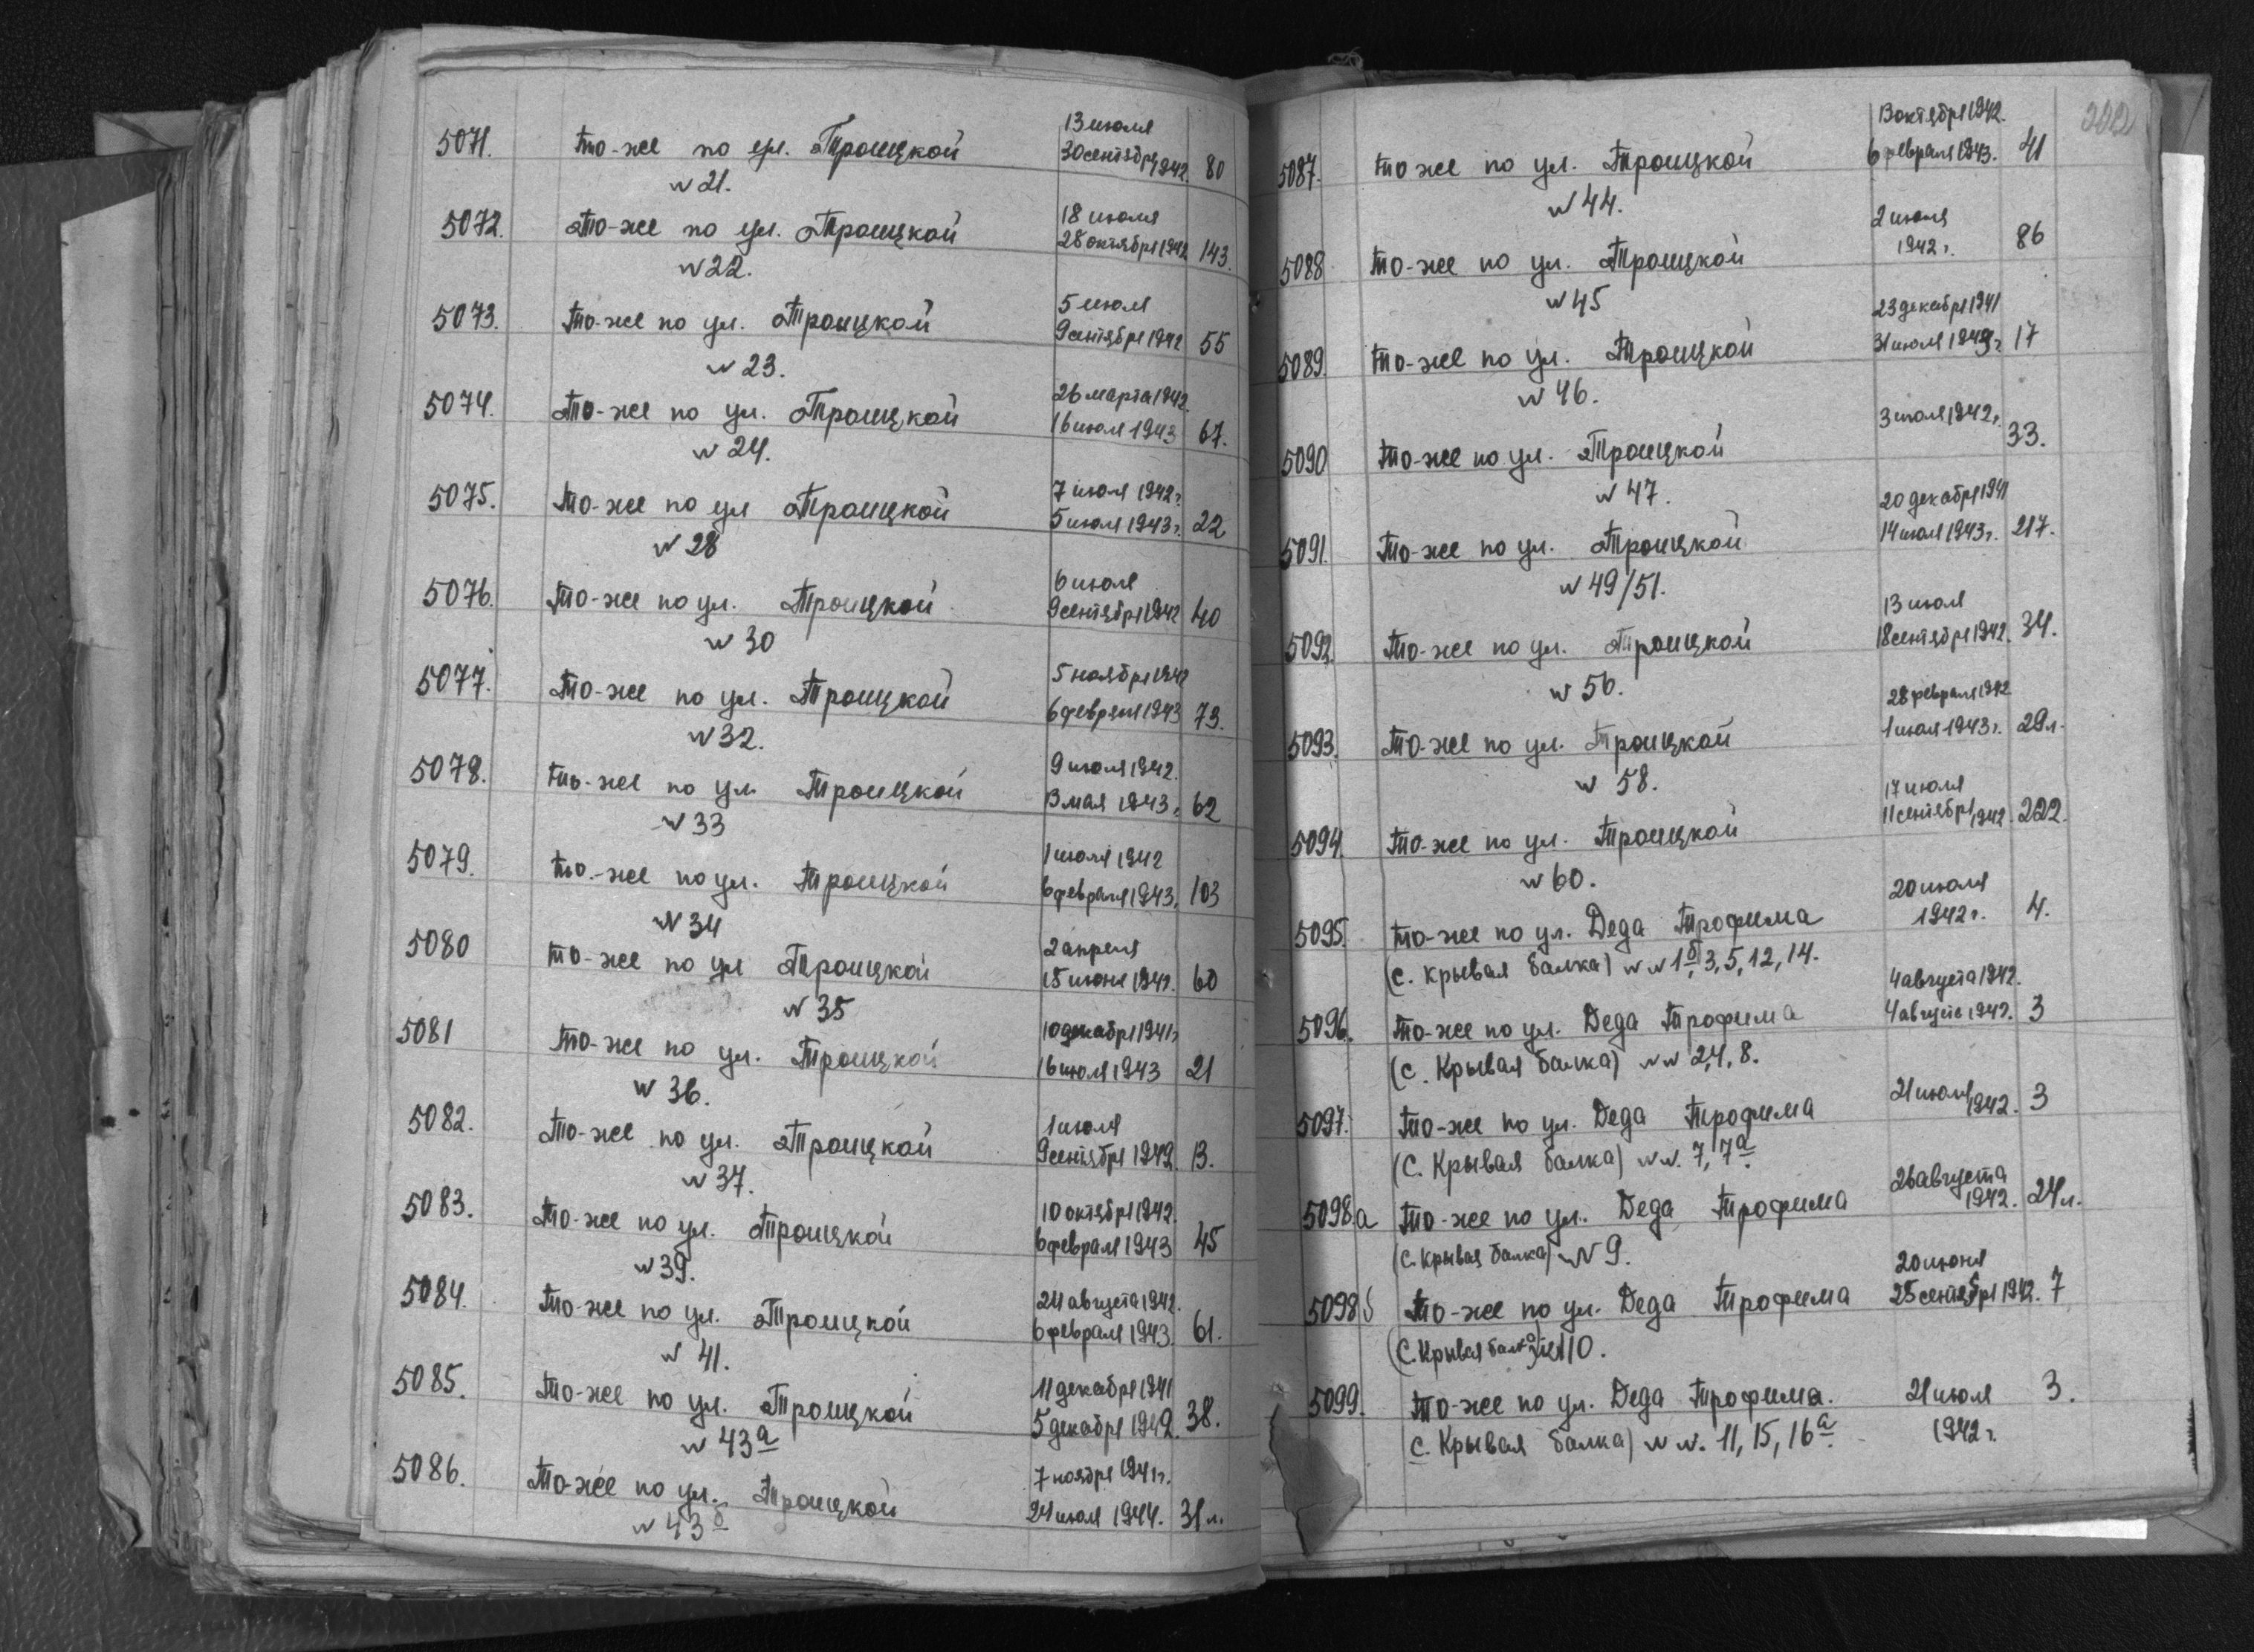 5071. то-же по ул. Троицкой 13 июля
30 сентября 1942. 80
№ 21.
5072. то-же по ул. Троицкой 18 июля
28 октября 1942 143.
№ 22.
5073. то-же по ул. Троицкой 5 июля
9 сентября 1942 55
№ 23.
5074. то-же по ул. Троицкой 26 марта 1942.
16 июля 1943 67.
№ 24.
5075. то-же по ул Троицкой 7 июля 1942 г.
5 июля 1943 г. 22
№ 28
5076. то-же по ул. Троицкой 6 июля
9 сентября 1942 40
№ 30
5077. то-же по ул. Троицкой 5 ноября 1942
6 февраля 1943 73.
№ 32.
5078. то-же по ул. Троицкой 9 июля 1942.
13 мая 1943 г. 62
№ 33
5079. то.-же по ул. Троицкой 1 июля 1942
6 февраля 1943. 103
№ 34
5080 то-же по ул Троицкой 2 апреля
15 июня 1942. 60
№ 35
5081 то-же по ул. Троицкой 10 декабря 1941 г.
16 июля 1943 21
№ 36.
5082. то-же по ул. Троицкой 1 июля
9 сентября 1942. 13.
№ 37.
5083. то-же по ул. Троицкой 10 октября 1942.
6 февраля 1943 45
№ 39.
5084. то-же по ул. Троицкой 24 августа 1942.
6 февраля 1943. 61.
№ 41.
5085. то-же по ул. Троицкой 11 декабря 1941
5 декабря 1942. 38.
№ 43а
5086. то-же по ул. Троицкой 7 ноября 1941 г.
24 июля 1944. 31 л.
№ 43б
202
13 октября 1942.
5087. то же по ул. Троицкой 6 февраля 1943. 41
№ 44.
2 июля
5088 то-же по ул. Троицкой 1942 г. 86
№ 45
23 декабря 1941
5089. то-же по ул. Троицкой 31 июля 1943 г. 17
№ 46.
3 июля 1942 г.
5090 то-же по ул. Троицкой 33.
№ 47.
20 декабря 1941
5091. то-же по ул. Троицкой 14 июля 1943 г. 217.
№ 49/51.
13 июля
5092. то-же по ул. Троицкой 18 сентября 1942. 34.
№ 56.
28 февраля 1942
5093. то-же по ул. Троицкой 1 июля 1943 г. 29 л.
№ 58.
17 июля
5094. то-же по ул. Троицкой 11 сентября 1942 222.
№ 60.
20 июля
5095. то-же по ул. Деда Трофима 1942 г. 4.
(с. Крывая балка) №№ 1б, 3, 5, 12, 14.
4 августа 1942.
5096. то-же по ул. Деда Трофима 4 августа 1942. 3
(с. Крывая балка) №№ 2, 4, 8.
5097. то-же по ул. Деда Трофима 21 июля 1942. 3
(с. Крывая балка) №№. 7, 7а.
5098а то-же по ул. Деда Трофима 26 августа 1942. 24 л.
(с. Крывая балка) № 9.
20 июня
5098б то-же по ул. Деда Трофима 25 сентября 1942. 7
(с. Крывая балка) № 10.
5099. то-же по ул. Деда Трофима. 21 июля 3.
с. Крывая балка) №№. 11, 15, 16а. 1942 г.